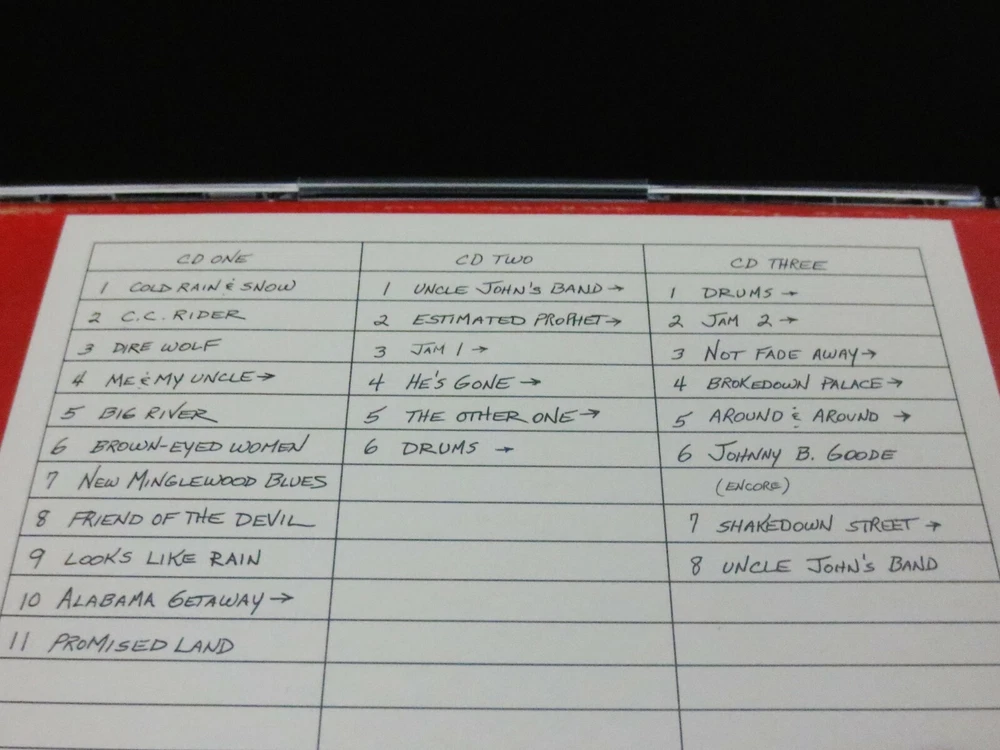 CD ONE
1 COLD RAIN & SNOW
2 C.C. RIDER
3 DIRE WOLF
4 ME & MY UNCLE →
5 BIG RIVER
6 BROWN-EYED WOMEN
7 NEW MINGLEWOOD BLUES
8 FRIEND OF THE DEVIL
9 LOOKS LIKE RAIN
10 ALABAMA GETAWAY →
11 PROMISED LAND
CD TWO
1 UNCLE JOHN'S BAND →
2 ESTIMATED PROPHET →
3 JAM 1 →
4 HE'S GONE →
5 THE OTHER ONE →
6 DRUMS →
CD THREE
1 DRUMS →
2 JAM 2 →
3 NOT FADE AWAY →
4 BROKEDOWN PALACE →
5 AROUND & AROUND →
6 JOHNNY B. GOODE
(ENCORE)
7 SHAKEDOWN STREET →
8 UNCLE JOHN'S BAND